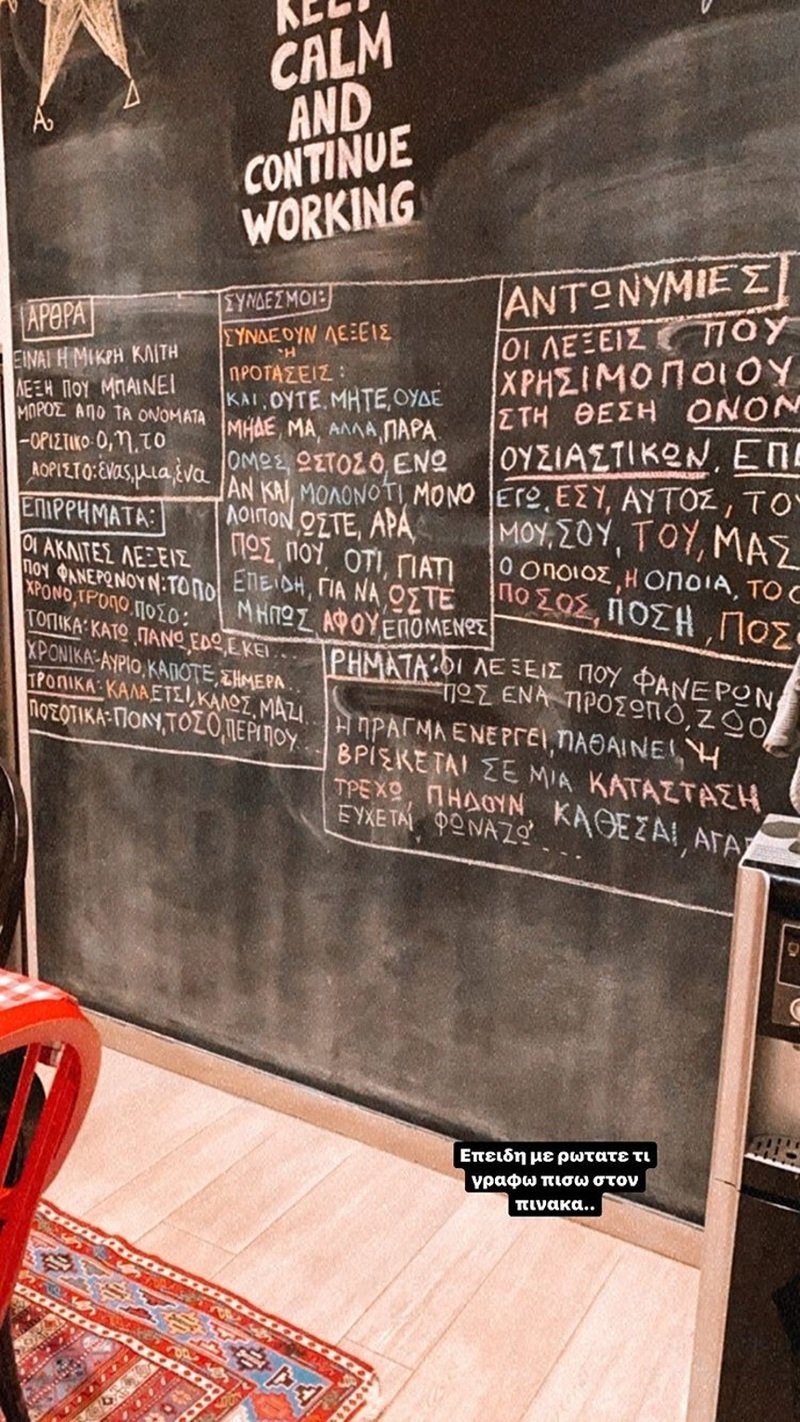 KEEP
CALM
AND
CONTINUE
WORKING
Α
Δ
ΑΡΘΡΑ
ΕΙΝΑΙ Η ΜΙΚΡΗ ΚΛΙΤΗ
ΛΕΞΗ ΠΟΥ ΜΠΑΙΝΕΙ
ΜΠΡΟΣ ΑΠΟ ΤΑ ΟΝΟΜΑΤΑ
-ΟΡΙΣΤΙΚΟ: Ο, η, το
ΑΟΡΙΣΤΟ: ένας, μια, ένα
ΕΠΙΡΡΗΜΑΤΑ:
ΟΙ ΑΚΛΙΤΕΣ ΛΕΞΕΙΣ
ΠΟΥ ΦΑΝΕΡΩΝΟΥΝ: ΤΟΠΟ
ΧΡΟΝΟ, ΤΡΟΠΟ, ΠΟΣΟ:
ΤΟΠΙΚΑ: ΚΑΤΩ, ΠΑΝΩ, ΕΔΩ, ΕΚΕΙ...
ΧΡΟΝΙΚΑ: ΑΥΡΙΟ, ΚΑΠΟΤΕ, ΣΗΜΕΡΑ..
ΤΡΟΠΙΚΑ: ΚΑΛΑ, ΕΤΣΙ, ΚΑΛΩΣ, ΜΑΖΙ..
ΠΟΣΟΤΙΚΑ: ΠΟΛΥ, ΤΟΣΟ, ΠΕΡΙΠΟΥ...
ΣΥΝΔΕΣΜΟΙ:
ΣΥΝΔΕΟΥΝ ΛΕΞΕΙΣ
Ή
ΠΡΟΤΑΣΕΙΣ:
ΚΑΙ, ΟΥΤΕ, ΜΗΤΕ, ΟΥΔΕ
ΜΗΔΕ, ΜΑ, ΑΛΛΑ, ΠΑΡΑ
ΟΜΩΣ, ΩΣΤΟΣΟ, ΕΝΩ
ΑΝ ΚΑΙ, ΜΟΛΟΝΟΤΙ, ΜΟΝΟ
ΛΟΙΠΟΝ, ΩΣΤΕ, ΑΡΑ,
ΠΩΣ, ΠΟΥ, ΟΤΙ, ΓΙΑΤΙ
ΕΠΕΙΔΗ, ΓΙΑ ΝΑ, ΩΣΤΕ
ΜΗΠΩΣ, ΑΦΟΥ, ΕΠΟΜΕΝΩΣ
ΑΝΤΩΝΥΜΙΕΣ
ΟΙ ΛΕΞΕΙΣ ΠΟΥ
ΧΡΗΣΙΜΟΠΟΙΟΥ
ΣΤΗ ΘΕΣΗ ΟΝΟΜ
ΟΥΣΙΑΣΤΙΚΩΝ, ΕΠΙ
ΕΓΩ, ΕΣΥ, ΑΥΤΟΣ, ΤΟΥ
ΜΟΥ, ΣΟΥ, ΤΟΥ, ΜΑΣ
Ο ΟΠΟΙΟΣ, Η ΟΠΟΙΑ, ΤΟ Ο
ΠΟΣΟΣ, ΠΟΣΗ, ΠΟΣ
ΡΗΜΑΤΑ: ΟΙ ΛΕΞΕΙΣ ΠΟΥ ΦΑΝΕΡΩΝ
ΠΩΣ ΕΝΑ ΠΡΟΣΩΠΟ, ΖΩΟ
Η ΠΡΑΓΜΑ ΕΝΕΡΓΕΙ, ΠΑΘΑΙΝΕΙ, Ή
ΒΡΙΣΚΕΤΑΙ ΣΕ ΜΙΑ ΚΑΤΑΣΤΑΣΗ
ΤΡΕΧΩ, ΠΗΔΟΥΝ ΚΑΘΕΣΑΙ, ΑΓΑΠ
ΕΥΧΕΤΑΙ, ΦΩΝΑΖΩ....
Επειδη με ρωτατε τι
γραφω πισω στον
πινακα..